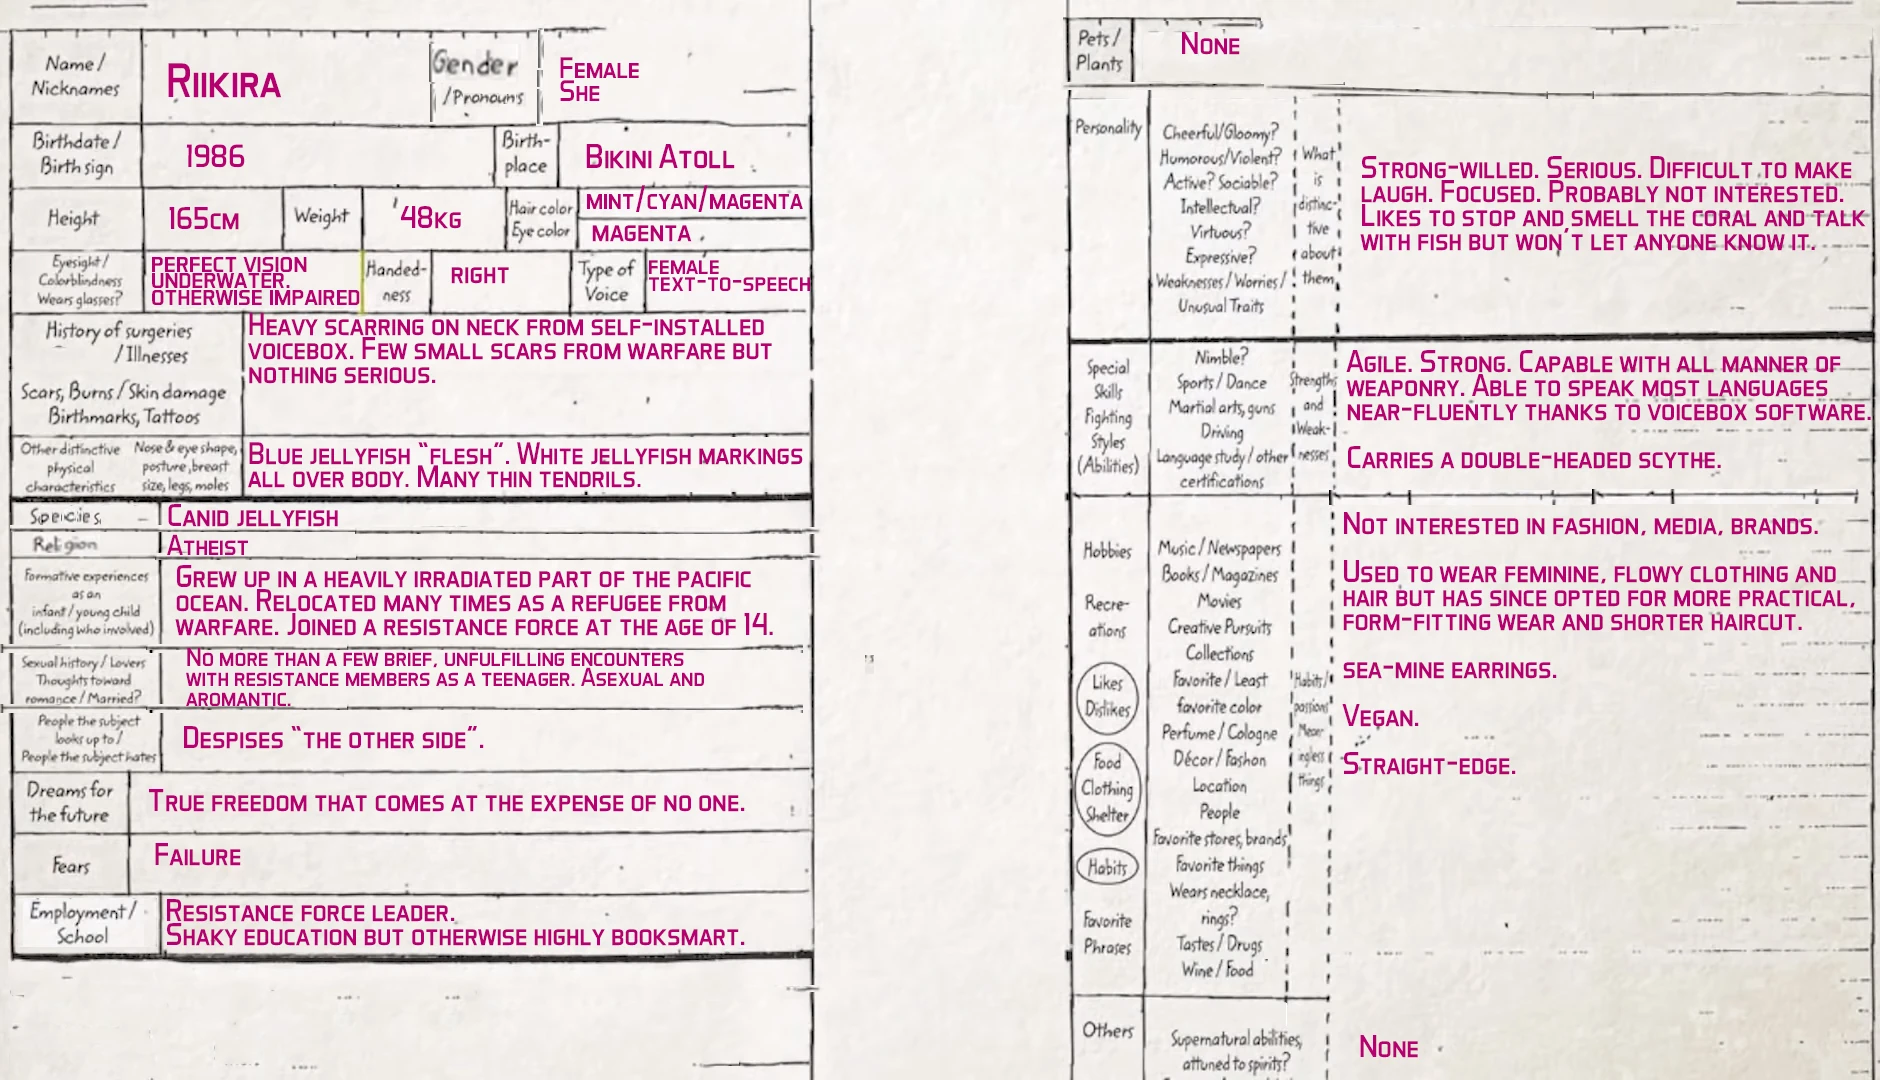 Name /
Nicknames
RIIKIRA
Gender
/Pronouns
FEMALE
SHE
Birthdate /
Birth sign
1986
Birth-
place
BIKINI ATOLL
Height
165CM
Weight
48KG
Hair color
Eye color
MINT/CYAN/MAGENTA
MAGENTA
Eyesight /
Colorblindness
Wears glasses?
PERFECT VISION
UNDERWATER.
OTHERWISE IMPAIRED
Handed-
ness
RIGHT
Type of
Voice
FEMALE
TEXT-TO-SPEECH
History of surgeries
/ Illnesses
Scars, Burns / Skin damage
Birthmarks, Tattoos
HEAVY SCARRING ON NECK FROM SELF-INSTALLED
VOICEBOX. FEW SMALL SCARS FROM WARFARE BUT
NOTHING SERIOUS.
Other distinctive
physical
characteristics
Nose & eye shape,
posture, breast
size, legs, moles
BLUE JELLYFISH "FLESH". WHITE JELLYFISH MARKINGS
ALL OVER BODY. MANY THIN TENDRILS.
Species
CANID JELLYFISH
Religion
ATHEIST
Formative experiences
as an
infant / young child
(including who involved)
GREW UP IN A HEAVILY IRRADIATED PART OF THE PACIFIC
OCEAN. RELOCATED MANY TIMES AS A REFUGEE FROM
WARFARE. JOINED A RESISTANCE FORCE AT THE AGE OF 14.
Sexual history / Lovers
Thoughts toward
romance / Married?
NO MORE THAN A FEW BRIEF, UNFULFILLING ENCOUNTERS
WITH RESISTANCE MEMBERS AS A TEENAGER. ASEXUAL AND
AROMANTIC.
People the subject
looks up to /
People the subject hates
DESPISES "THE OTHER SIDE".
Dreams for
the future
TRUE FREEDOM THAT COMES AT THE EXPENSE OF NO ONE.
Fears
FAILURE
Employment /
School
RESISTANCE FORCE LEADER.
SHAKY EDUCATION BUT OTHERWISE HIGHLY BOOKSMART.
Pets /
Plants
NONE
Personality
Cheerful/Gloomy?
Humorous/Violent?
Active? Sociable?
Intellectual?
Virtuous?
Expressive?
Weaknesses / Worries /
Unusual Traits
What
is
distinc-
tive
about
them
STRONG-WILLED. SERIOUS. DIFFICULT TO MAKE
LAUGH. FOCUSED. PROBABLY NOT INTERESTED.
LIKES TO STOP AND SMELL THE CORAL AND TALK
WITH FISH BUT WON'T LET ANYONE KNOW IT.
Special
Skills
Fighting
Styles
(Abilities)
Nimble?
Sports / Dance
Martial arts, guns
Driving
Language study / other
certifications
Strengths
and
Weak-
nesses
AGILE. STRONG. CAPABLE WITH ALL MANNER OF
WEAPONRY. ABLE TO SPEAK MOST LANGUAGES
NEAR-FLUENTLY THANKS TO VOICEBOX SOFTWARE.
CARRIES A DOUBLE-HEADED SCYTHE.
Hobbies
Recre-
ations
Likes
Dislikes
Food
Clothing
Shelter
Habits
Favorite
Phrases
Music / Newspapers
Books / Magazines
Movies
Creative Pursuits
Collections
Favorite / Least
favorite color
Perfume / Cologne
Décor / Fashon
Location
People
Favorite stores, brands
Favorite things
Wears necklace,
rings?
Tastes / Drugs
Wine / Food
Habits /
passions
Mean-
ingless
things
NOT INTERESTED IN FASHION, MEDIA, BRANDS.
USED TO WEAR FEMININE, FLOWY CLOTHING AND
HAIR BUT HAS SINCE OPTED FOR MORE PRACTICAL,
FORM-FITTING WEAR AND SHORTER HAIRCUT.
SEA-MINE EARRINGS.
VEGAN.
STRAIGHT-EDGE.
Others
Supernatural abilities,
attuned to spirits?
NONE